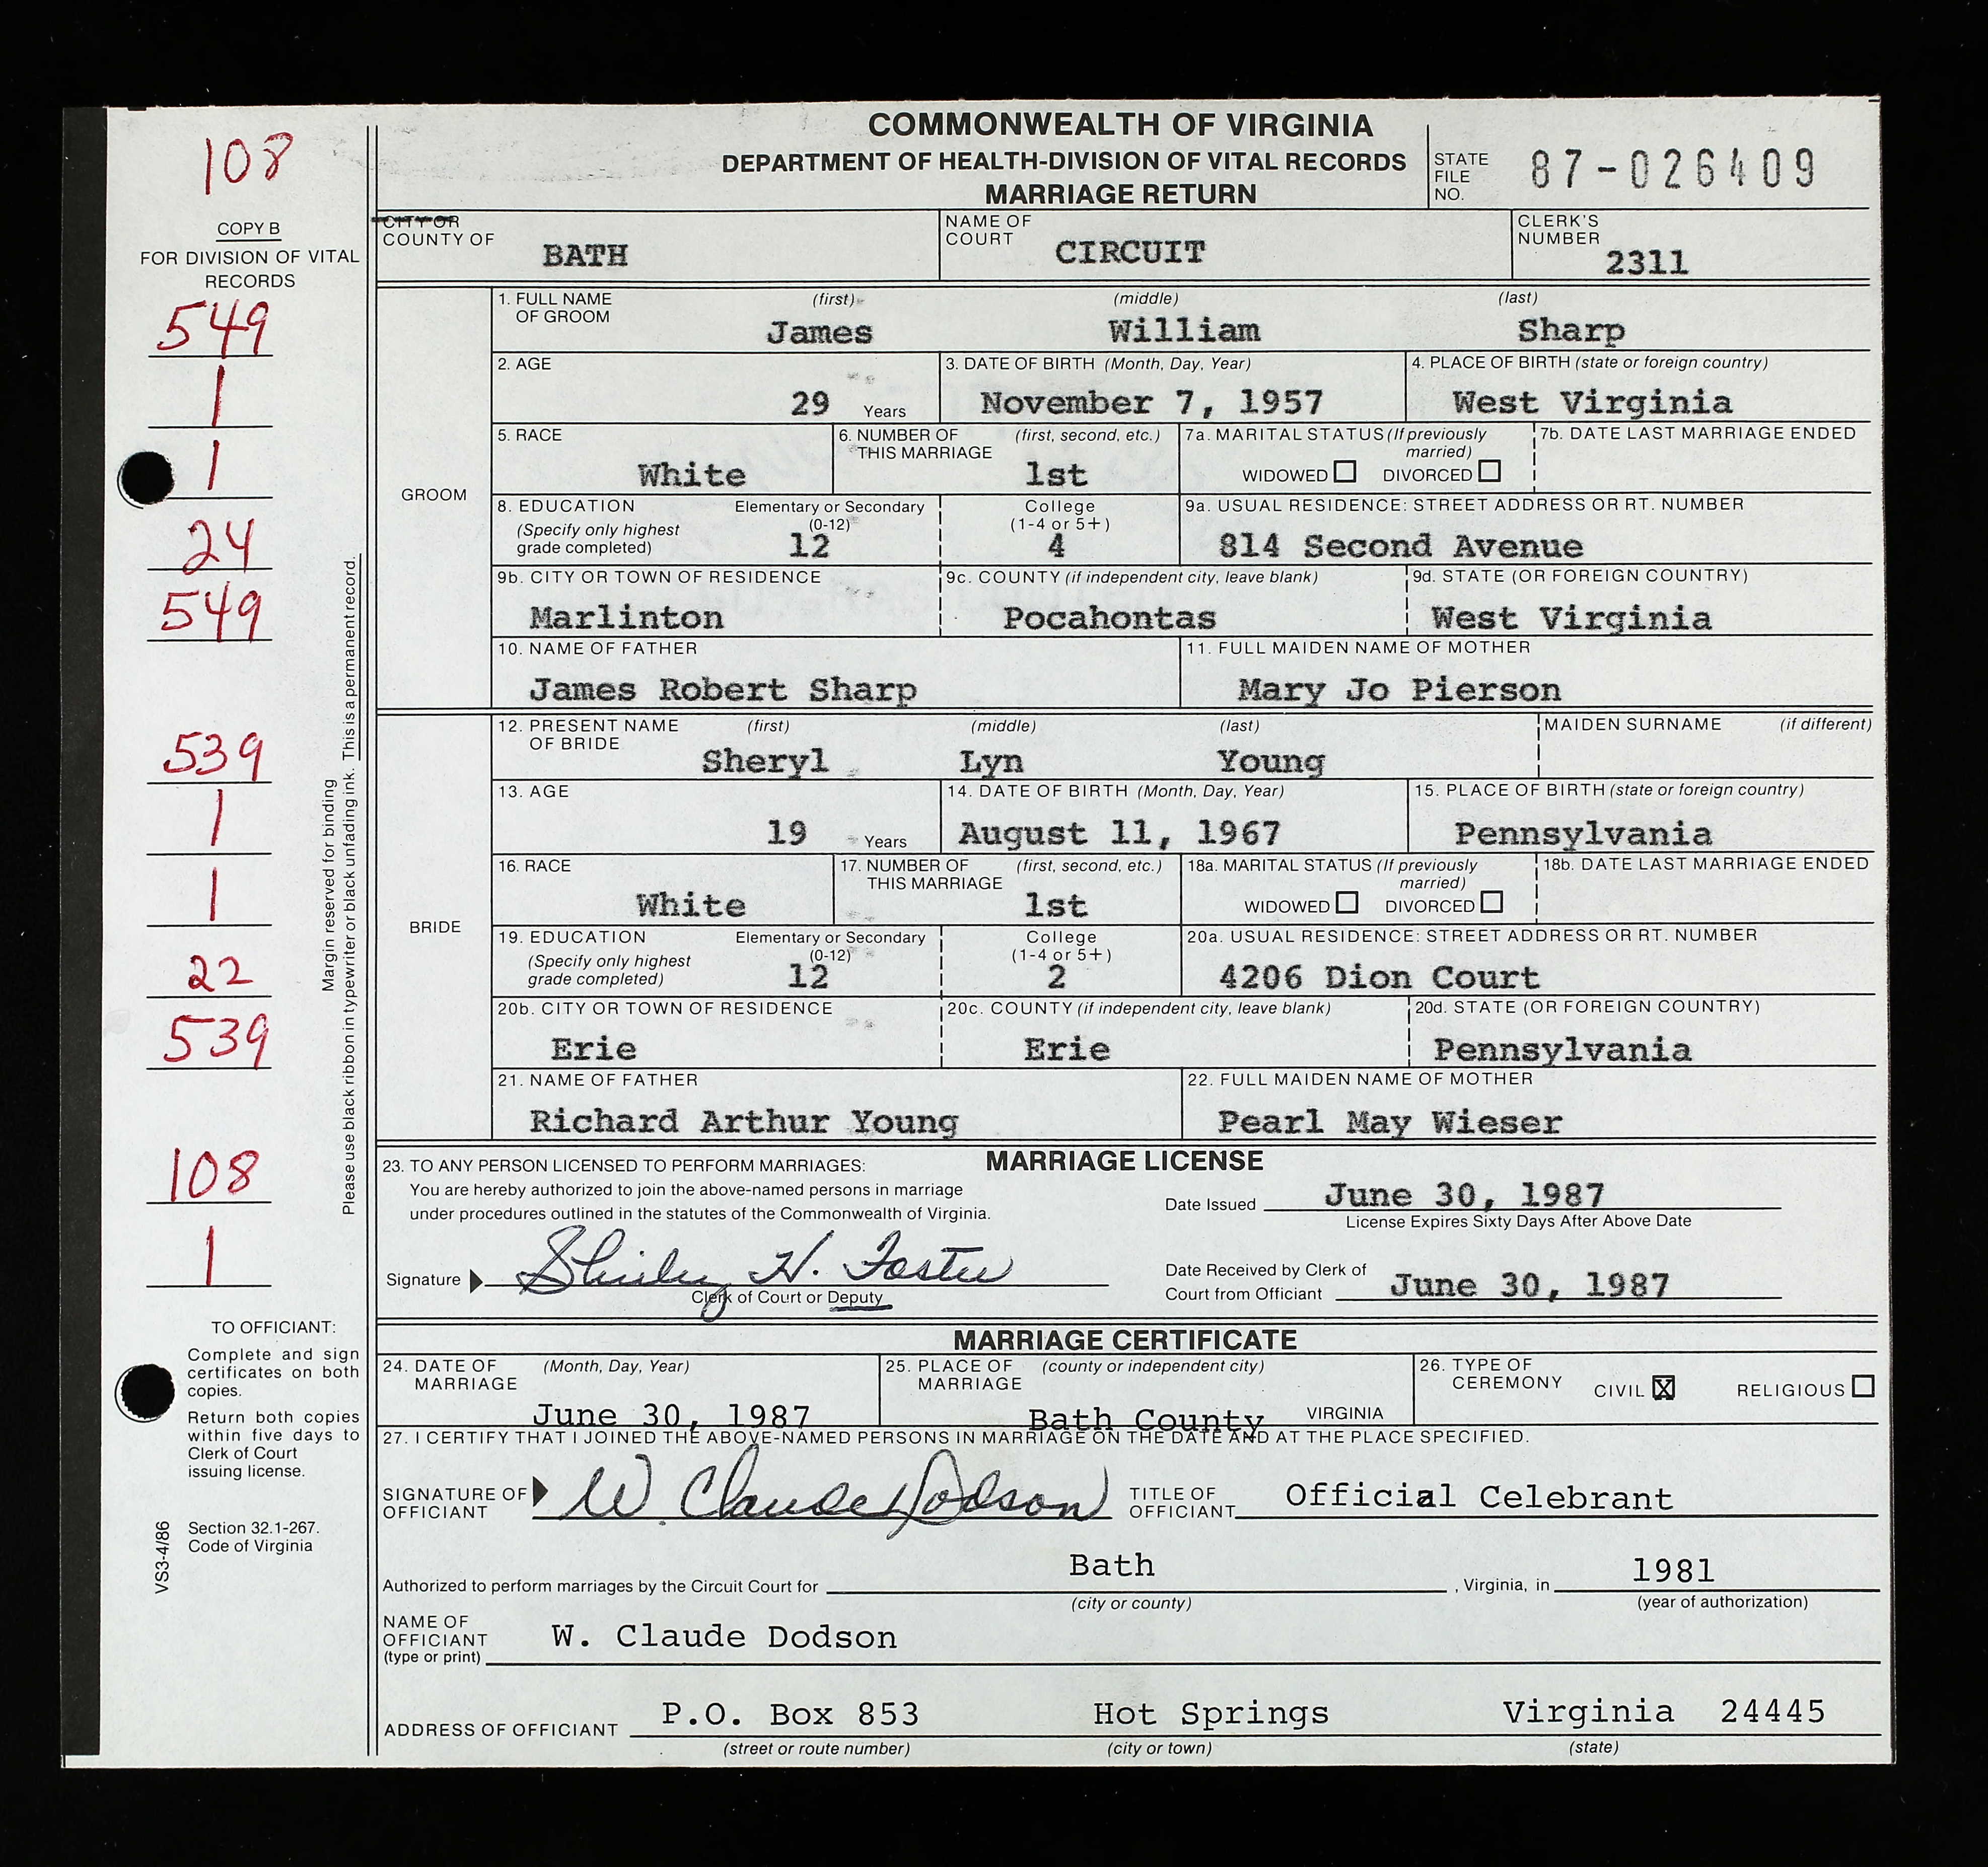 COMMONWEALTH OF VIRGINIA
DEPARTMENT OF HEALTH-DIVISION OF VITAL RECORDS
MARRIAGE RETURN
STATE FILE NO. 87-026409
108
COPY B
FOR DIVISION OF VITAL RECORDS
549
1
1
24
549
539
1
1
22
539
108
1
Margin reserved for binding
Please use black ribbon in typewriter or black unfading ink. This is a permanent record.
TO OFFICIANT:
Complete and sign
certificates on both
copies.
Return both copies
within five days to
Clerk of Court
issuing license.
Section 32.1-267.
Code of Virginia
VS3-4/86
CITY OR COUNTY OF BATH
NAME OF COURT CIRCUIT
CLERK'S NUMBER 2311
GROOM
1. FULL NAME OF GROOM (first) James (middle) William (last) Sharp
2. AGE 29 Years
3. DATE OF BIRTH (Month, Day, Year) November 7, 1957
4. PLACE OF BIRTH (state or foreign country) West Virginia
5. RACE White
6. NUMBER OF THIS MARRIAGE (first, second, etc.) 1st
7a. MARITAL STATUS (If previously married) WIDOWED ☐ DIVORCED ☐
7b. DATE LAST MARRIAGE ENDED
8. EDUCATION (Specify only highest grade completed) Elementary or Secondary (0-12) 12 College (1-4 or 5+) 4
9a. USUAL RESIDENCE: STREET ADDRESS OR RT. NUMBER 814 Second Avenue
9b. CITY OR TOWN OF RESIDENCE Marlinton
9c. COUNTY (if independent city, leave blank) Pocahontas
9d. STATE (OR FOREIGN COUNTRY) West Virginia
10. NAME OF FATHER James Robert Sharp
11. FULL MAIDEN NAME OF MOTHER Mary Jo Pierson
BRIDE
12. PRESENT NAME OF BRIDE (first) Sheryl (middle) Lyn (last) Young
MAIDEN SURNAME (if different)
13. AGE 19 Years
14. DATE OF BIRTH (Month, Day, Year) August 11, 1967
15. PLACE OF BIRTH (state or foreign country) Pennsylvania
16. RACE White
17. NUMBER OF THIS MARRIAGE (first, second, etc.) 1st
18a. MARITAL STATUS (If previously married) WIDOWED ☐ DIVORCED ☐
18b. DATE LAST MARRIAGE ENDED
19. EDUCATION (Specify only highest grade completed) Elementary or Secondary (0-12) 12 College (1-4 or 5+) 2
20a. USUAL RESIDENCE: STREET ADDRESS OR RT. NUMBER 4206 Dion Court
20b. CITY OR TOWN OF RESIDENCE Erie
20c. COUNTY (if independent city, leave blank) Erie
20d. STATE (OR FOREIGN COUNTRY) Pennsylvania
21. NAME OF FATHER Richard Arthur Young
22. FULL MAIDEN NAME OF MOTHER Pearl May Wieser
MARRIAGE LICENSE
23. TO ANY PERSON LICENSED TO PERFORM MARRIAGES:
You are hereby authorized to join the above-named persons in marriage
under procedures outlined in the statutes of the Commonwealth of Virginia.
Date Issued June 30, 1987
License Expires Sixty Days After Above Date
Signature Shirley H. Foster
Clerk of Court or Deputy
Date Received by Clerk of Court from Officiant June 30, 1987
MARRIAGE CERTIFICATE
24. DATE OF MARRIAGE (Month, Day, Year) June 30, 1987
25. PLACE OF MARRIAGE (county or independent city) Bath County VIRGINIA
26. TYPE OF CEREMONY CIVIL ☒ RELIGIOUS ☐
27. I CERTIFY THAT I JOINED THE ABOVE-NAMED PERSONS IN MARRIAGE ON THE DATE AND AT THE PLACE SPECIFIED.
SIGNATURE OF OFFICIANT W. Claude Dodson
TITLE OF OFFICIANT Official Celebrant
Authorized to perform marriages by the Circuit Court for Bath, Virginia, in 1981
(city or county) (year of authorization)
NAME OF OFFICIANT (type or print) W. Claude Dodson
ADDRESS OF OFFICIANT P.O. Box 853 Hot Springs Virginia 24445
(street or route number) (city or town) (state)